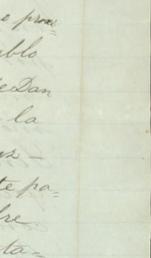 e prov=
ablo
de Dan
la
us –
te pa=
bre
ta=